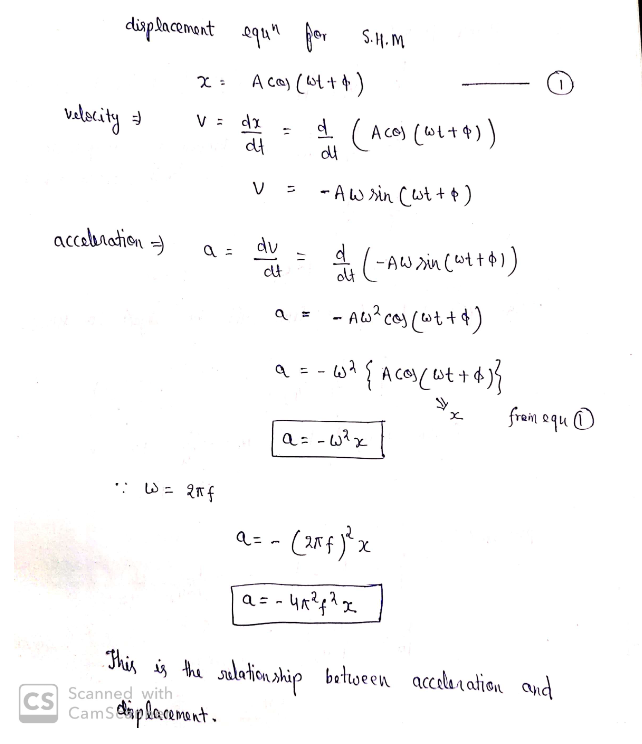 displacement equⁿ for S.H.M
x = A cos (ωt + ϕ) ——— ①
velocity ⇒ v = dx/dt = d/dt (A cos (ωt + ϕ))
v = - Aω sin (ωt + ϕ)
acceleration ⇒ a = dv/dt = d/dt (-Aω sin (ωt + ϕ))
a = - Aω² cos (ωt + ϕ)
a = - ω² { A cos (ωt + ϕ)}
⇓ x from equ ①
a = - ω² x
∵ ω = 2πf
a = - (2πf)² x
a = - 4π²f² x
This is the relationship between acceleration and
displacement.
CS Scanned with
CamSc